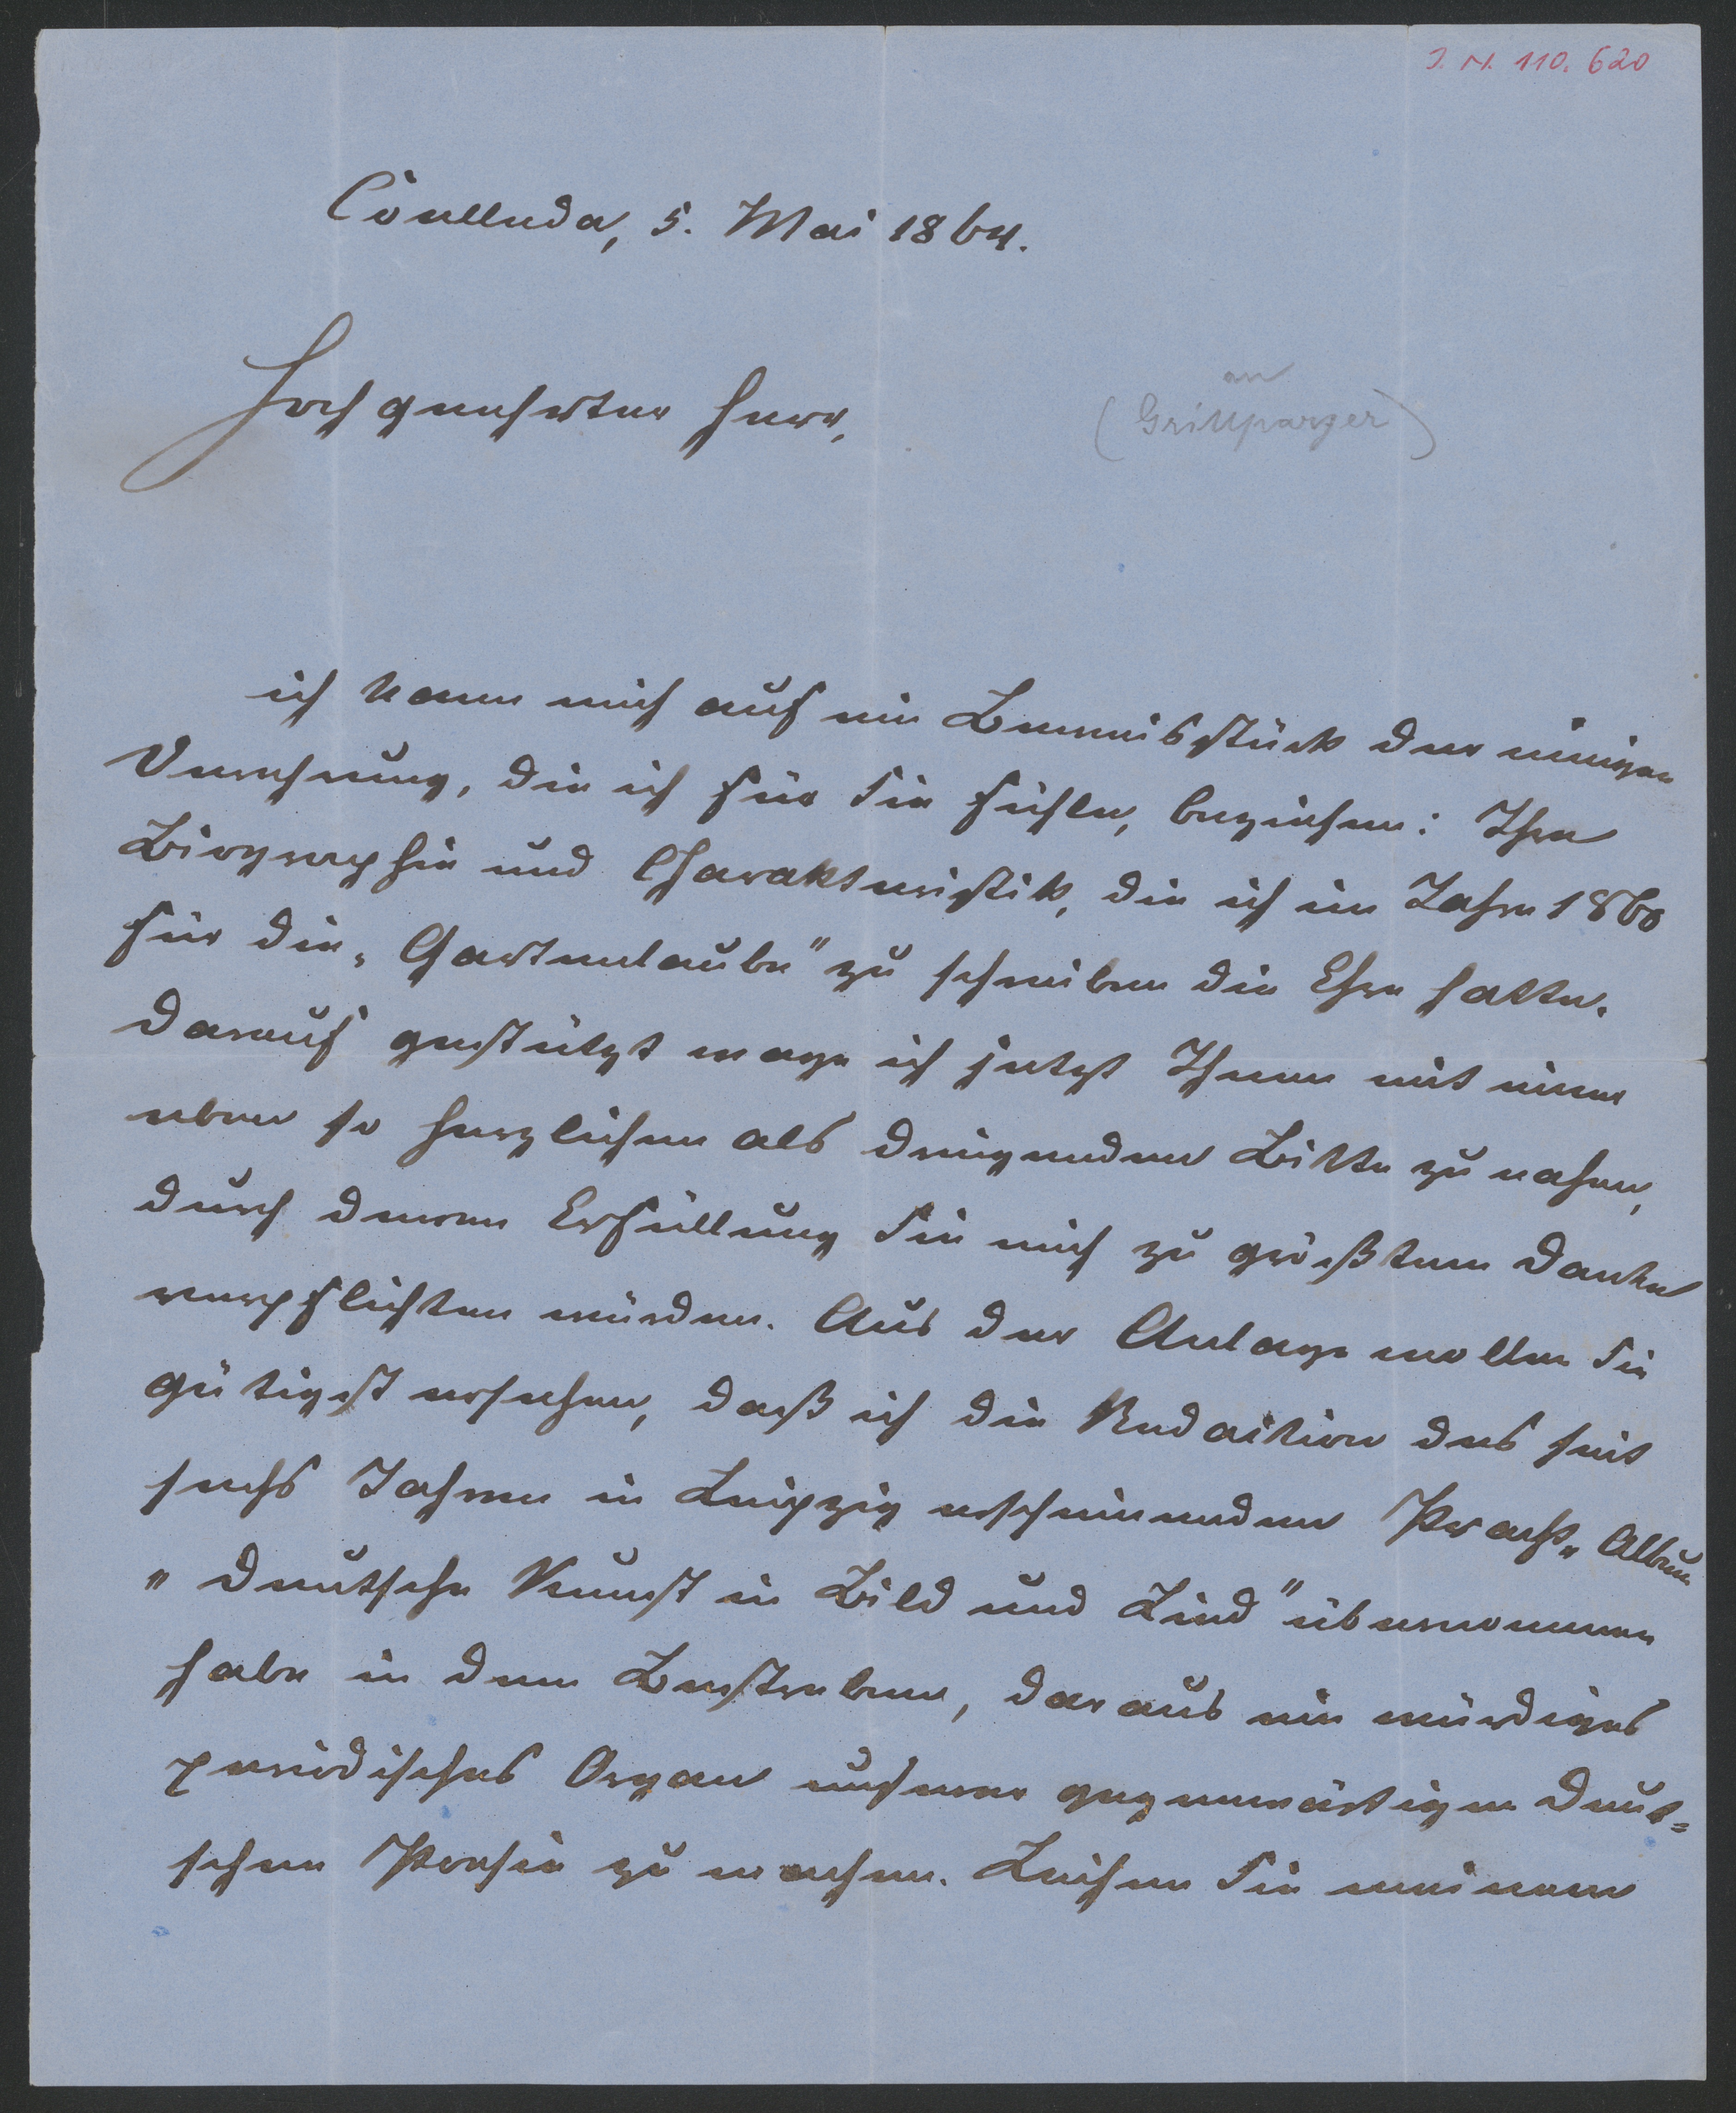 I. N. 110.620
Cölleda, 5. Mai 1864.
Hochgeehrter Herr,
an
(Grillparzer)
ich kann mich auf ein Beweisstück der innigen
Verehrung, die ich für Sie fühle, beziehen: Ihre
Biographie und Charakteristik, die ich im Jahre 1860
für die „Gartenlaube" zu schreiben die Ehre hatte.
Darauf gestützt wage ich jetzt Ihnen mit einer
eben so herzlichen als dringenden Bitte zu nahen,
durch deren Erfüllung Sie mich zu größtem Danke
verpflichten würden. Aus der Anlage wollen Sie
gütigst ersehen, daß ich die Redaction des seit
sechs Jahren in Leipzig erscheinenden Pracht„Album
„Deutsche Kunst in Bild und Lied" übernommen
habe in dem Bestreben, daraus ein würdiges
periodisches Organ unserer gegenwärtigen deut=
schen Poesie zu machen. Leihen Sie meinem